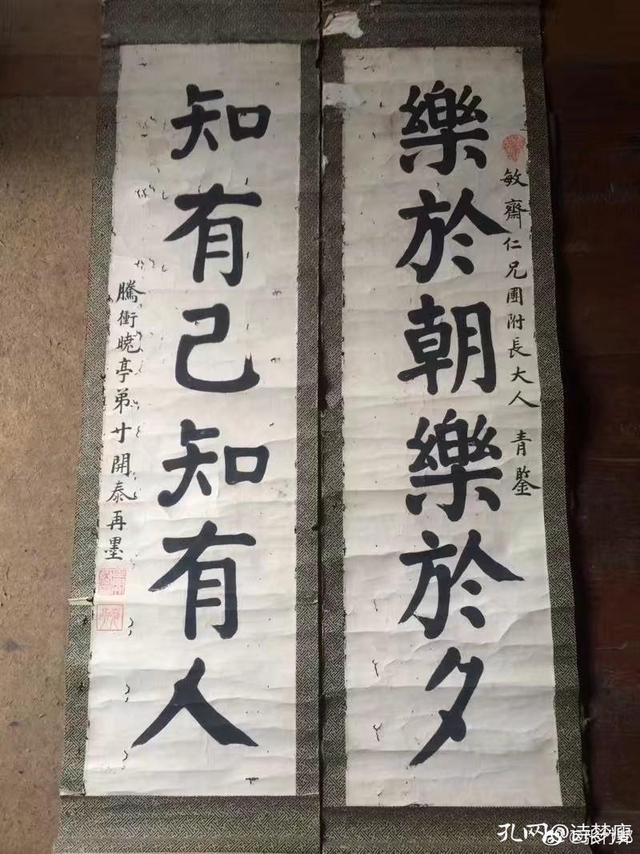 樂於朝樂於夕
敏齋仁兄團附長大人 青鑒
知有己知有人
騰衝曉亭弟寸開泰再墨
孔网@诗梦廊